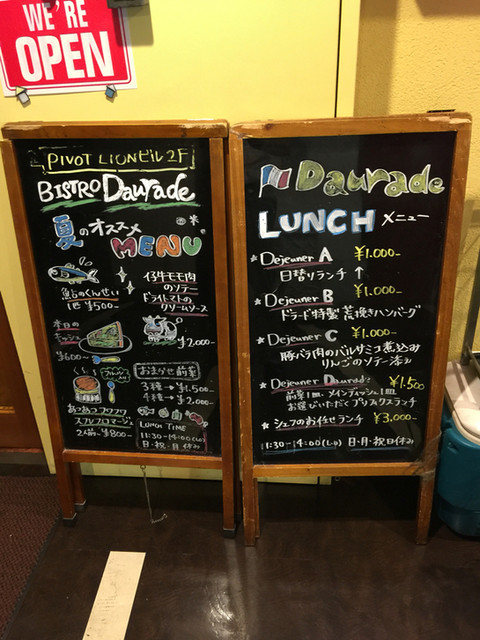 WE'RE
OPEN
PIVOT LIONビル2F
BISTRO Daurade
夏のオススメ
MENU
鮎のくんせい
1匹 ¥500-
仔牛モモ肉
のソテー
ドライトマトの
クリームソース
¥2,000-
本日の
キッシュ
¥600-
おまかせ前菜
3種 ¥1,500-
4種 ¥2,000-
あつあつフワフワ
スフレフロマージュ
2人前 ¥800-
LUNCH TIME
11:30-14:00(L.O)
日・祝・月 休み
Daurade
LUNCH メニュー
★ Dejeuner A ¥1,000-
日替りランチ ↑
★ Dejeuner B ¥1,000-
ドラード特製 荒挽きハンバーグ
★ Dejeuner C ¥1,000-
豚バラ肉のバルサミコ煮込み
りんごのソテー添み
★ Dejeuner Daurade ¥1,500
前菜1皿、メインディッシュ1皿
お選びいただくプリフィクスランチ
★ シェフのお任せランチ ¥3,000-
11:30-14:00(L.O) 日・月・祝日休み